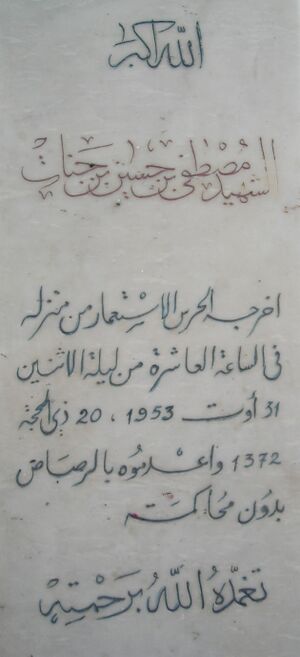 الله اكبر
الشهيد مُصْطفى بن حسين بن جنات
اخرجه الحرس الاسْتِعمار من منزله
في الساعة العاشرة من ليلة الاثنين
31 أوت 1953 ، 20 ذي الحجة
1372 واعْدمُوه بالرصاص
بدُون مُحاكمَته
تغمّدهُ اللهُ برَحْمتِهِ